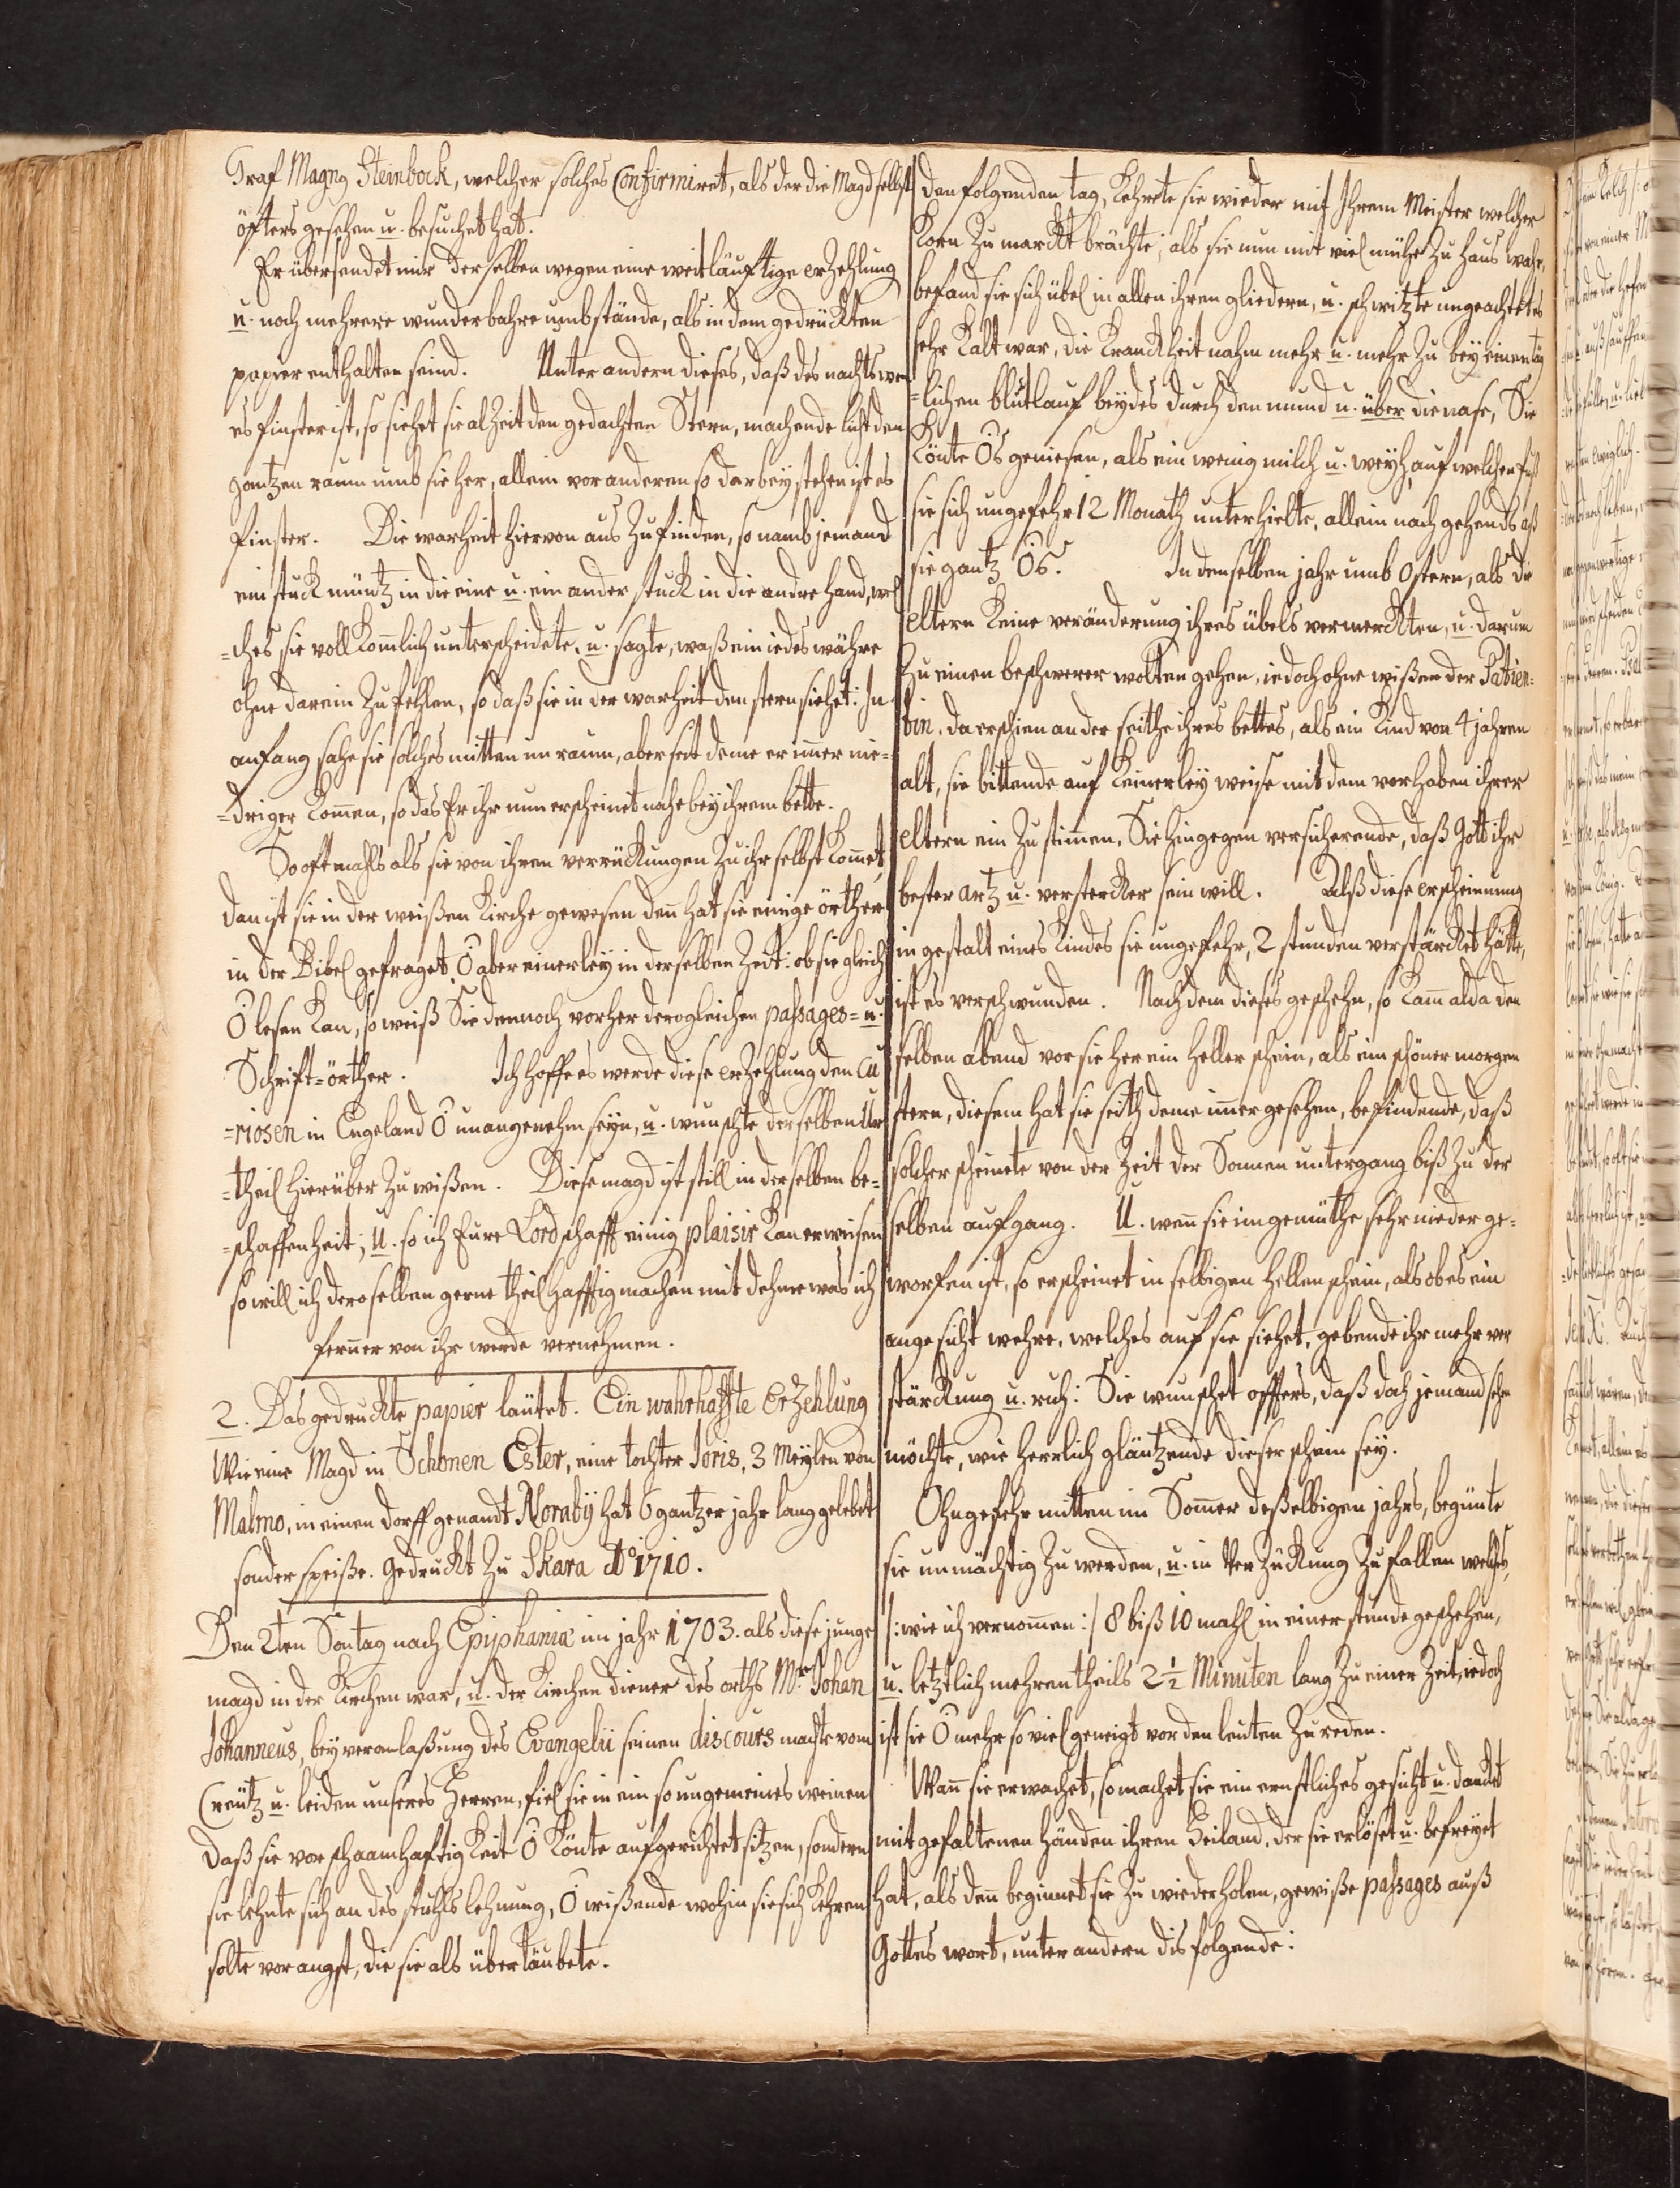 Graf Magnq Steinbock, welcher solches Confirmiret, als der die Magd selbst
öfters gesehen u. besuchet hat.
Er übersendet mir derselben wegen eine weitläuftige erZehlung
u. noch mehrere wunderbahre umbstände, als in dem gedruckten
papier enthalten seind. Unter andern dieses, daß des nachts wen
es finster ist, so siehet sie alZeit den gedachten Stern, machende licht den
gantzen raum umb sie her, allein vor anderen so darbey stehen ist es
finster. Die warheit hiervon aus Zu finden, so namb jemand
ein stuck müntz in die eine u. ein ander stuck in die andre hand, wel
=ches sie vollkomlich unterscheidete, u. sagte, waß ein iedes währe
ohne darein Zu fehlen, so daß sie in der warheit den stern siehet: Im
anfang sahe sie solches mitten im raum, aber seit deme er immer nie=
=driger kommen, so das Er ihr nun erscheinet nahe bey ihrem bette.
So oftmahls als sie von ihren verrückungen Zu ihr selbst kommet,
dan ist sie in der weißen Kirche gewesen den hat sie einige örther
in der Bibel gefraget, O aber einerley in derselben Zeit: ob sie gleich
O lesen kan, so weiß Sie dennoch vorher dergleichen passages= u.
Schrift=örther. Ich hoffe es werde diese erZehlung den Cu
=riosen in Engeland O unangenehm seyn, u. wunschte derselben Ur
=theil hierüber Zu wißen. Diese magd ist still in derselben be=
=schaffenheit; U. so ich Eure Lordschafft einig plaisir kan erweisen
so will ich deroselben gerne theilhafftig machen mit dehme was ich
ferner von ihr werde vernehmen.
2. Das gedruckte papier läutet. Ein wahrhaffte Erzehlung
Wie eine Magd in Schonen Ester, eine tochter Joris, 3 Meylen von
Malmo, in einen dorff genandt Norabÿ hat 6 gantzer jahr lang gelebet
sonder speiße. Gedruckt Zu Skara Ao 1710.
Den 2ten Sontag nach Epiphaniæ im jahr 1703. als diese junge
magd in der Kirchen war, u. der Kirchen diener des orths Mr Johan
Johanneus, bey veranlaßung des Evangelii seinen discours machte vom
Creutz u. leiden unseres Herren, fiel sie in ein so ungemeines weinen
daß sie vor schaamhaftigkeit O könte aufgerichtet sitzen, sondern
sie lehnte sich an des stuhls lehnung, O wißende wohin sie sich kehren
solte vor angst, die sie als übertäubete.
den folgenden tag, kehrete sie wieder mit Ihrem Meister welcher
Korn Zu marckt brächte, als sie nun mit viel mühe Zu haus wahr,
befand sie sich übel in allen ihren gliedern, u. schwitzte ungeachtet es
sehr kalt war, die Kranckheit nahm mehr u. mehr Zu bey einen täg
=lichen blutlauf beydes durch den mund u. über die nase, Sie
könte Os geniesen, als ein wenig milch u. weyh, auf welchen fuß
sie sich ungefehr 12 Monath unterhielte, allein nach gehends aß
sie gantz Os. In denselben jahr umb Ostern, als die
eltern keine veränderung ihres übels vermerckten, u. darum
Zu einen beschwerer wolten gehen, iedoch ohne wißen der Patien=
tin, da erschien an der seithe ihres bettes, als ein Kind von 4 jahren
alt, sie bittende auf keinerley weise mit dem vorhaben ihrer
eltern ein Zu stimen, Sie hingegen versicherende, daß Gott ihr
bester artz u. verstercker sein will. Alß diese erscheinung
in gestalt eines Kindes sie ungefehr, 2 stunden verstärcket hätte,
ist es verschwunden. Nach dem dieses geschehn, so kam alda den
selben abend vor sie her ein heller schein, als ein schöner morgen
stern, diesem hat sie seith deme immer gesehen, befindende, daß
solcher scheinete von der Zeit der Sonnen untergang biß Zu der
selben aufgang. U. wen sie im gemüthe sehr nieder ge=
worfen ist, so erscheinet in selbigen hellen schein, als ob es ein
angesicht wehre, welches auf sie siehet, gebende ihr mehr ver
stärckung u. ruh: Sie wunschet offters, daß doch jemand sehn
möchte, wie herrlich gläntzende dieser schein sey.
Ohngefehr mitten im Somer deßelbigen jahrs, begünte
sie unmächtig Zu werden, u. in VerZückung Zu fallen welches,
/: wie ich vernomen :/ 8 biß 10 mahl in einer stunde geschehen,
u. letztlich mehrentheils 2 1/2 Minuten lang Zu einer Zeit, iedoch
ist sie O mehr so viel geneigt vor den leuten Zu reden.
Wan sie erwachet, so machet sie ein ernstliches gesicht u. dancket
mit gefaltenen händen ihren Heiland, der sie erlöset u. befreyet
hat, als den beginnet sie Zu wiederholen, gewiße passages auß
Gottes wort, unter andern dis folgende: